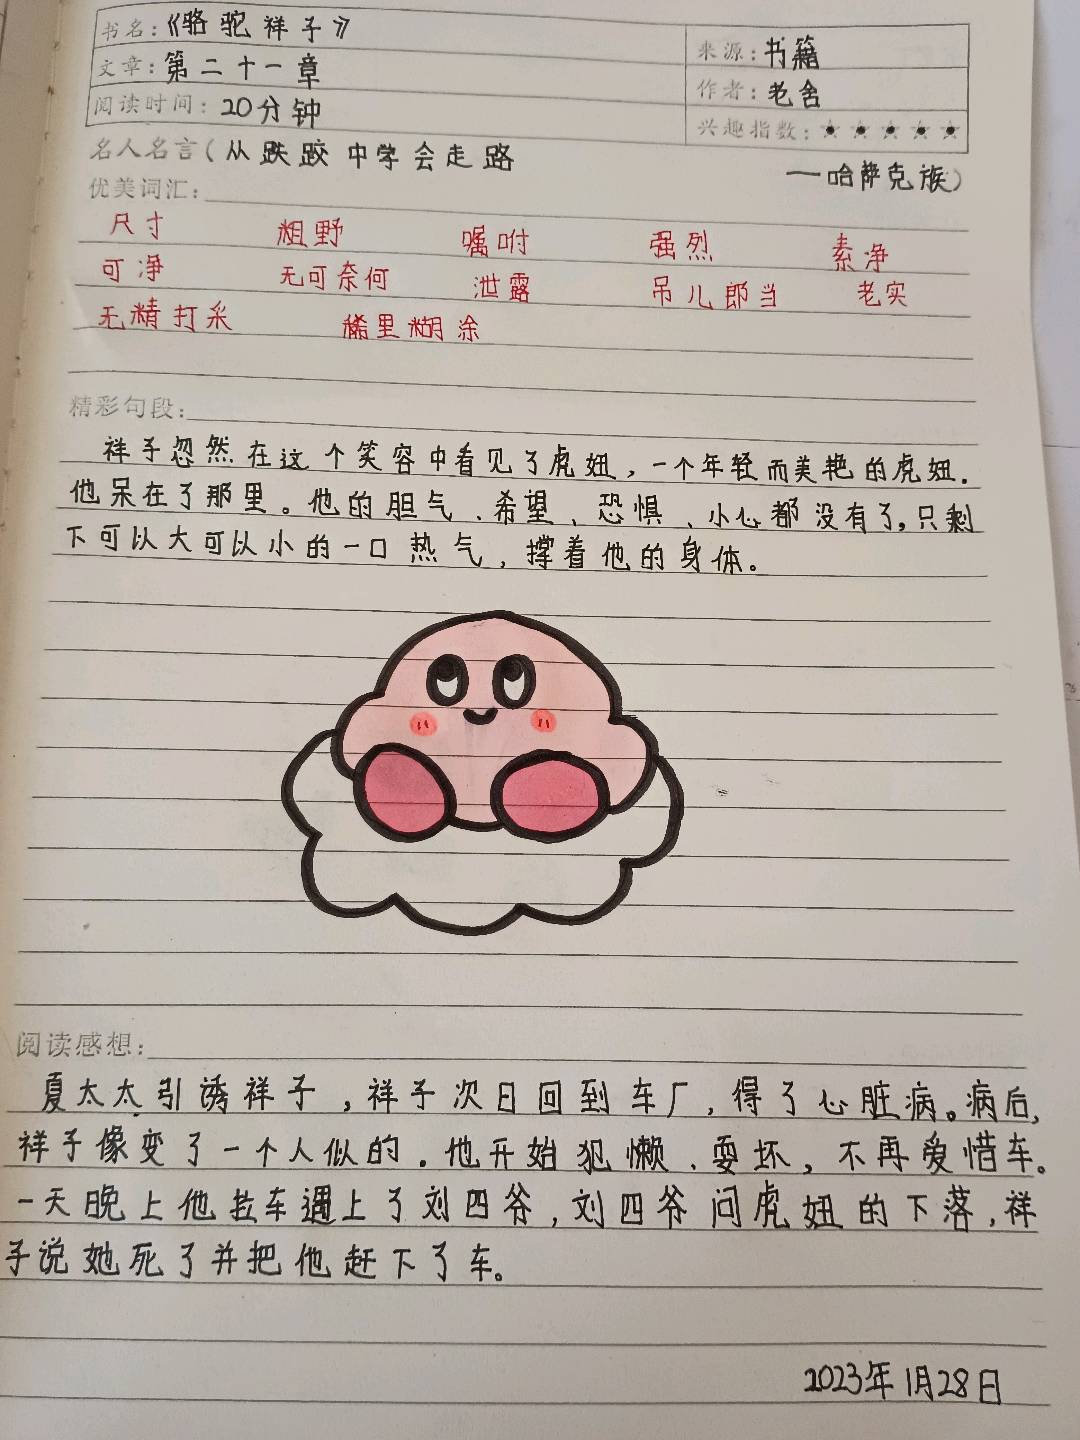 书名:《骆驼祥子》
来源:书籍
文章:第二十一章
作者:老舍
阅读时间:20分钟
兴趣指数:★★★★★
名人名言(从跌跤中学会走路
——哈萨克族)
优美词汇:
尺寸 粗野 嘱咐 强烈 素净
可净 无可奈何 泄露 吊儿郎当 老实
无精打采 稀里糊涂
精彩句段:
祥子忽然在这个笑容中看见了虎妞,一个年轻而美艳的虎妞.
他呆在了那里。他的胆气、希望、恐惧、小心都没有了,只剩
下可以大可以小的一口热气,撑着他的身体。
阅读感想:
夏太太引诱祥子,祥子次日回到车厂,得了心脏病。病后,
祥子像变了一个人似的.他开始犯懒、耍坏,不再爱惜车。
一天晚上他拉车遇上了刘四爷,刘四爷问虎妞的下落,祥
子说她死了并把他赶下了车。
2023年1月28日